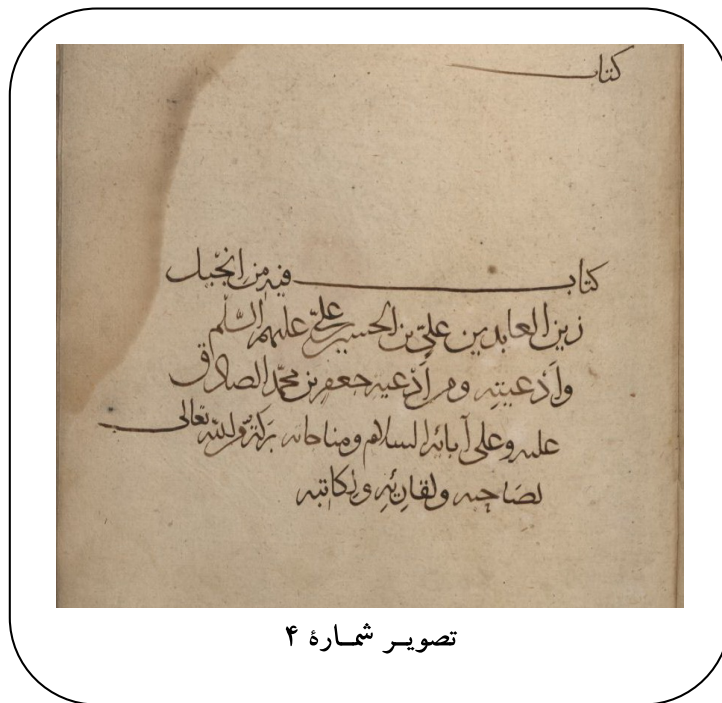 كتاب
كتاب فيه من انجيل
زين العابدين علي بن الحسين بن علي عليهم السلم
وأدعيته ومن أدعية جعفر بن محمد الصادق
عليه وعلى آبائه السلام ومناجاته بركة من الله تعالى
لصاحبه ولقارئه ولكاتبه
تصویر شمارهٔ ۴